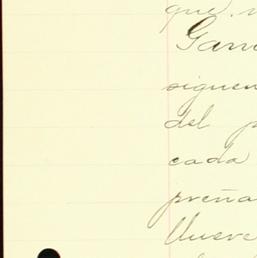 que
Gam
siguen
del p
cada
preña
llueve